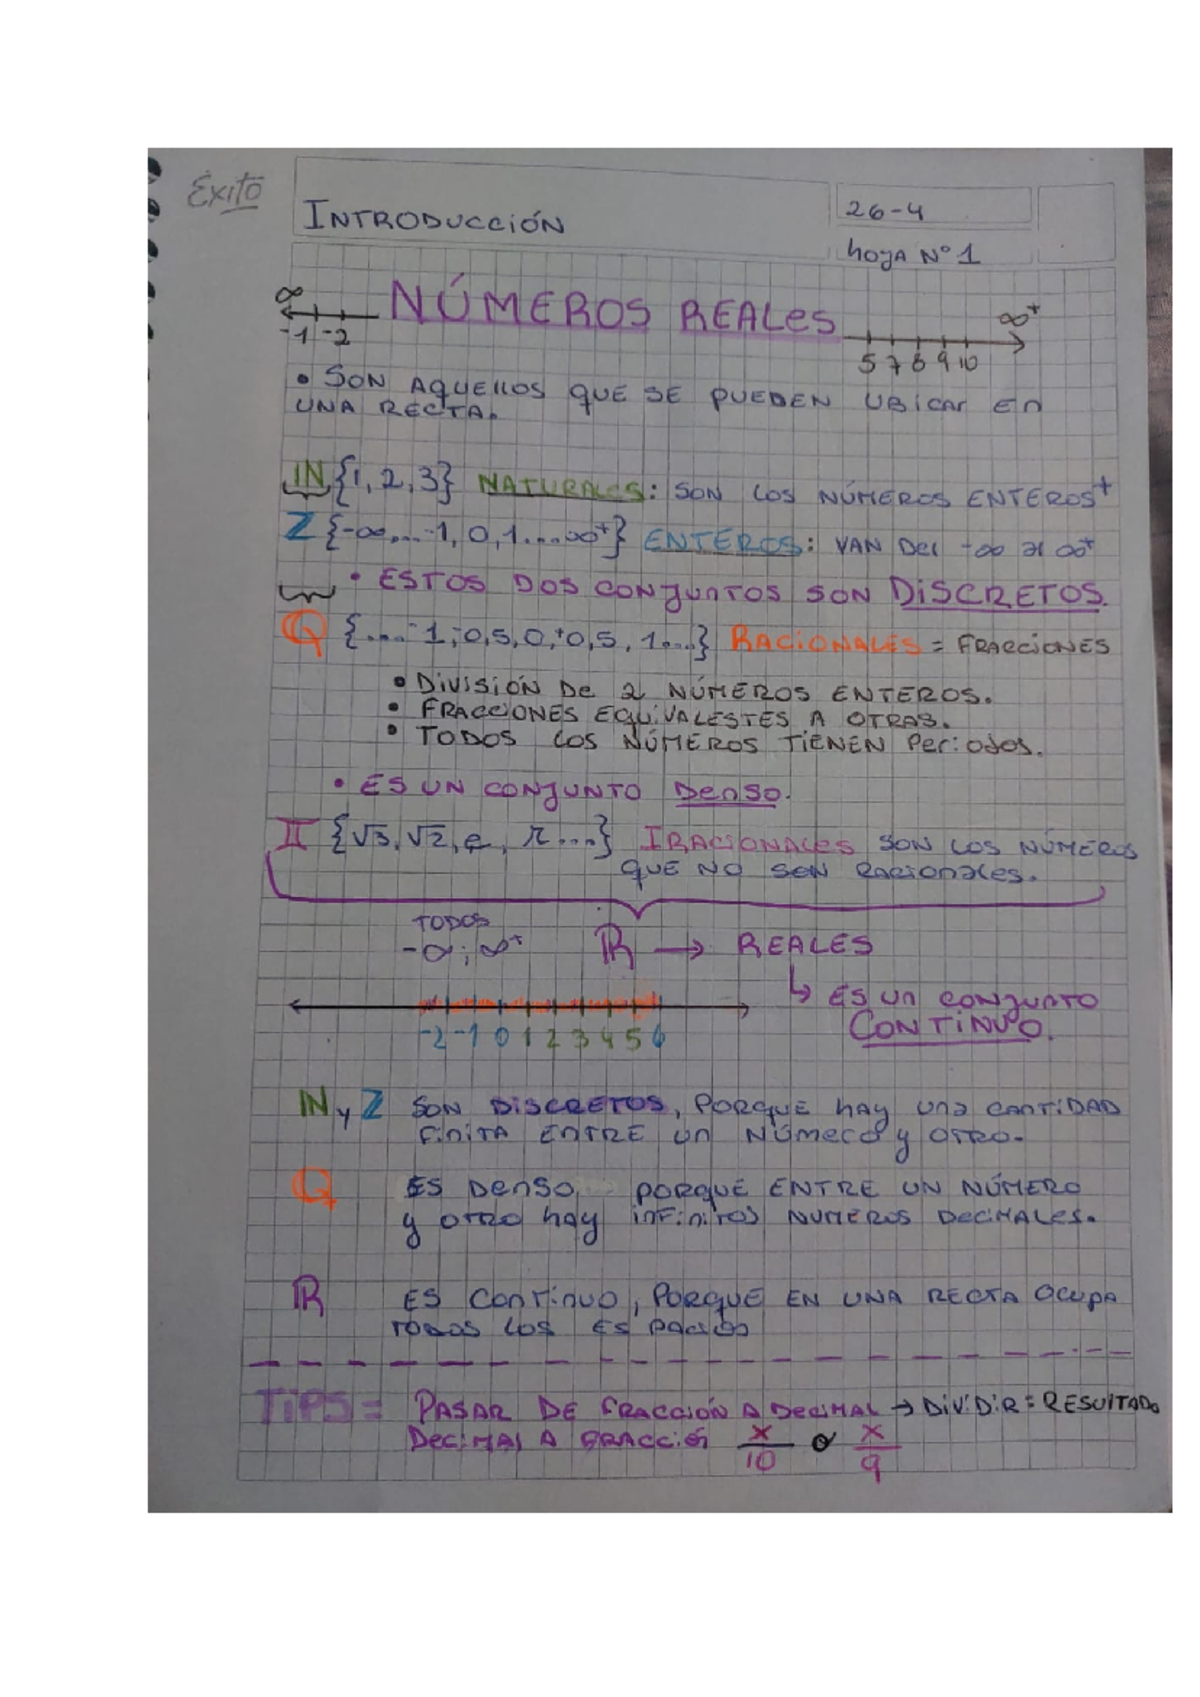 Éxito
INTRODUCCIÓN
26-4
hoja N° 1
NÚMEROS REALES
∞ -1 -2
5 7 8 9 10 ∞⁺
• SON AQUELLOS QUE SE PUEDEN UBICAR EN
UNA RECTA.
IN {1, 2, 3} NATURALES: SON LOS NÚMEROS ENTEROS⁺
Z {-∞,...-1, 0, 1....∞⁺} ENTEROS: VAN DEL -∞ al ∞⁺
• ESTOS DOS CONJUNTOS SON DISCRETOS.
Q {....-1,-0,5,0,⁺0,5, 1....} RACIONALES = FRACCIONES
• DIVISIÓN DE 2 NÚMEROS ENTEROS.
• FRACCIONES EQUIVALESTES A OTRAS.
• TODOS LOS NÚMEROS TIENEN PERIODOS.
• ES UN CONJUNTO DENSO.
II {√3, √2, e, π....} IRACIONALES SON LOS NÚMEROS
QUE NO SON RACIONALES.
TODOS
-∞; ∞⁺ IR → REALES
↳ ES UN CONJUNTO
CONTINUO.
-2 -1 0 1 2 3 4 5 6
IN y Z SON DISCRETOS, PORQUE HAY UNA CANTIDAD
FINITA ENTRE UN NÚMERO y OTRO.
Q ES DENSO, PORQUE ENTRE UN NÚMERO
y OTRO HAY INFINITOS NUMEROS DECIMALES.
IR ES CONTINUO, PORQUE EN UNA RECTA OCUPA
TODOS LOS ESPACIOS
TIPS = PASAR DE FRACCIÓN A DECIMAL → DIVIDIR = RESULTADO
DECIMAL A FRACCIÓN x/10 o x/9